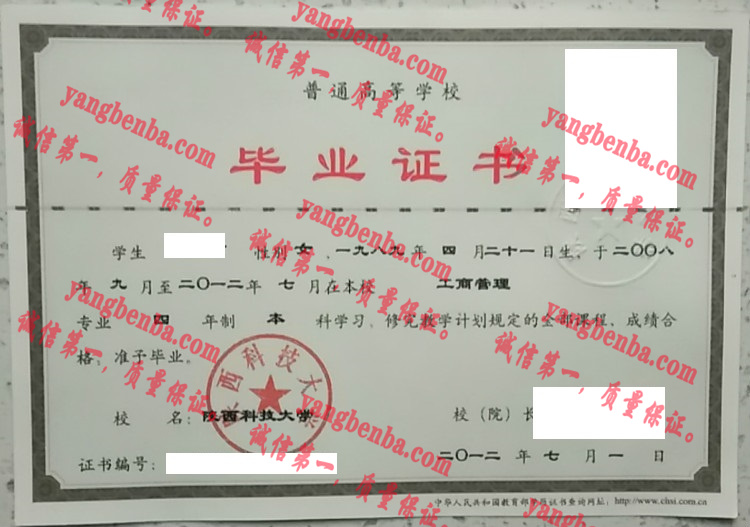 普通高等学校
毕业证书
学生 性别 女 ,一九八九年 四 月二十一日生，于二〇〇八
年 九 月至二〇一二年 七 月在本校 工商管理
专业 四 年制 本 科学习，修完教学计划规定的全部课程，成绩合
格，准予毕业。
校 名：陕西科技大学 校（院）长
证书编号： 二〇一二 年 七 月 一 日
中华人民共和国教育部学历证书查询网址：http://www.chsi.com.cn
陕西科技大学
yangbenba.com
诚信第一，质量保证。
yangbenba.com
诚信第一，质量保证。
yangbenba.com
诚信第一，质量保证。
yangbenba.com
诚信第一，质量保证。
yangbenba.com
诚信第一，质量保证。
yangbenba.com
诚信第一，质量保证。
yangbenba.com
诚信第一，质量保证。
yangbenba.com
诚信第一，质量保证。
yangbenba.com
诚信第一，质量保证。